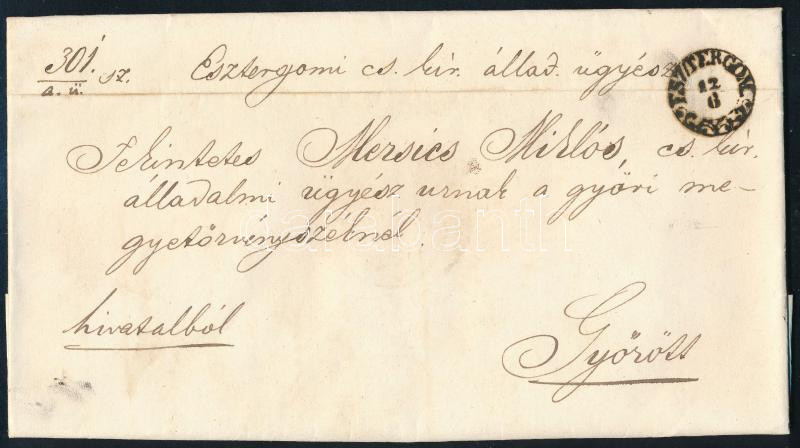 301. sz. Esztergomi cs. kir. állad. ügyész
a. ü.
ESZTERGOM
12
6
Tekintetes Mersics Miklós, cs. kir.
álladalmi ügyész urnak a győri me-
gyetörvényszéknél.
hivatalból
Győrött
darabanth